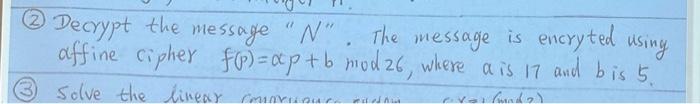 ② Decrypt the message "N". The message is encryted using
affine cipher f(p)=αp+b mod 26, where a is 17 and b is 5.
③ Solve the linear